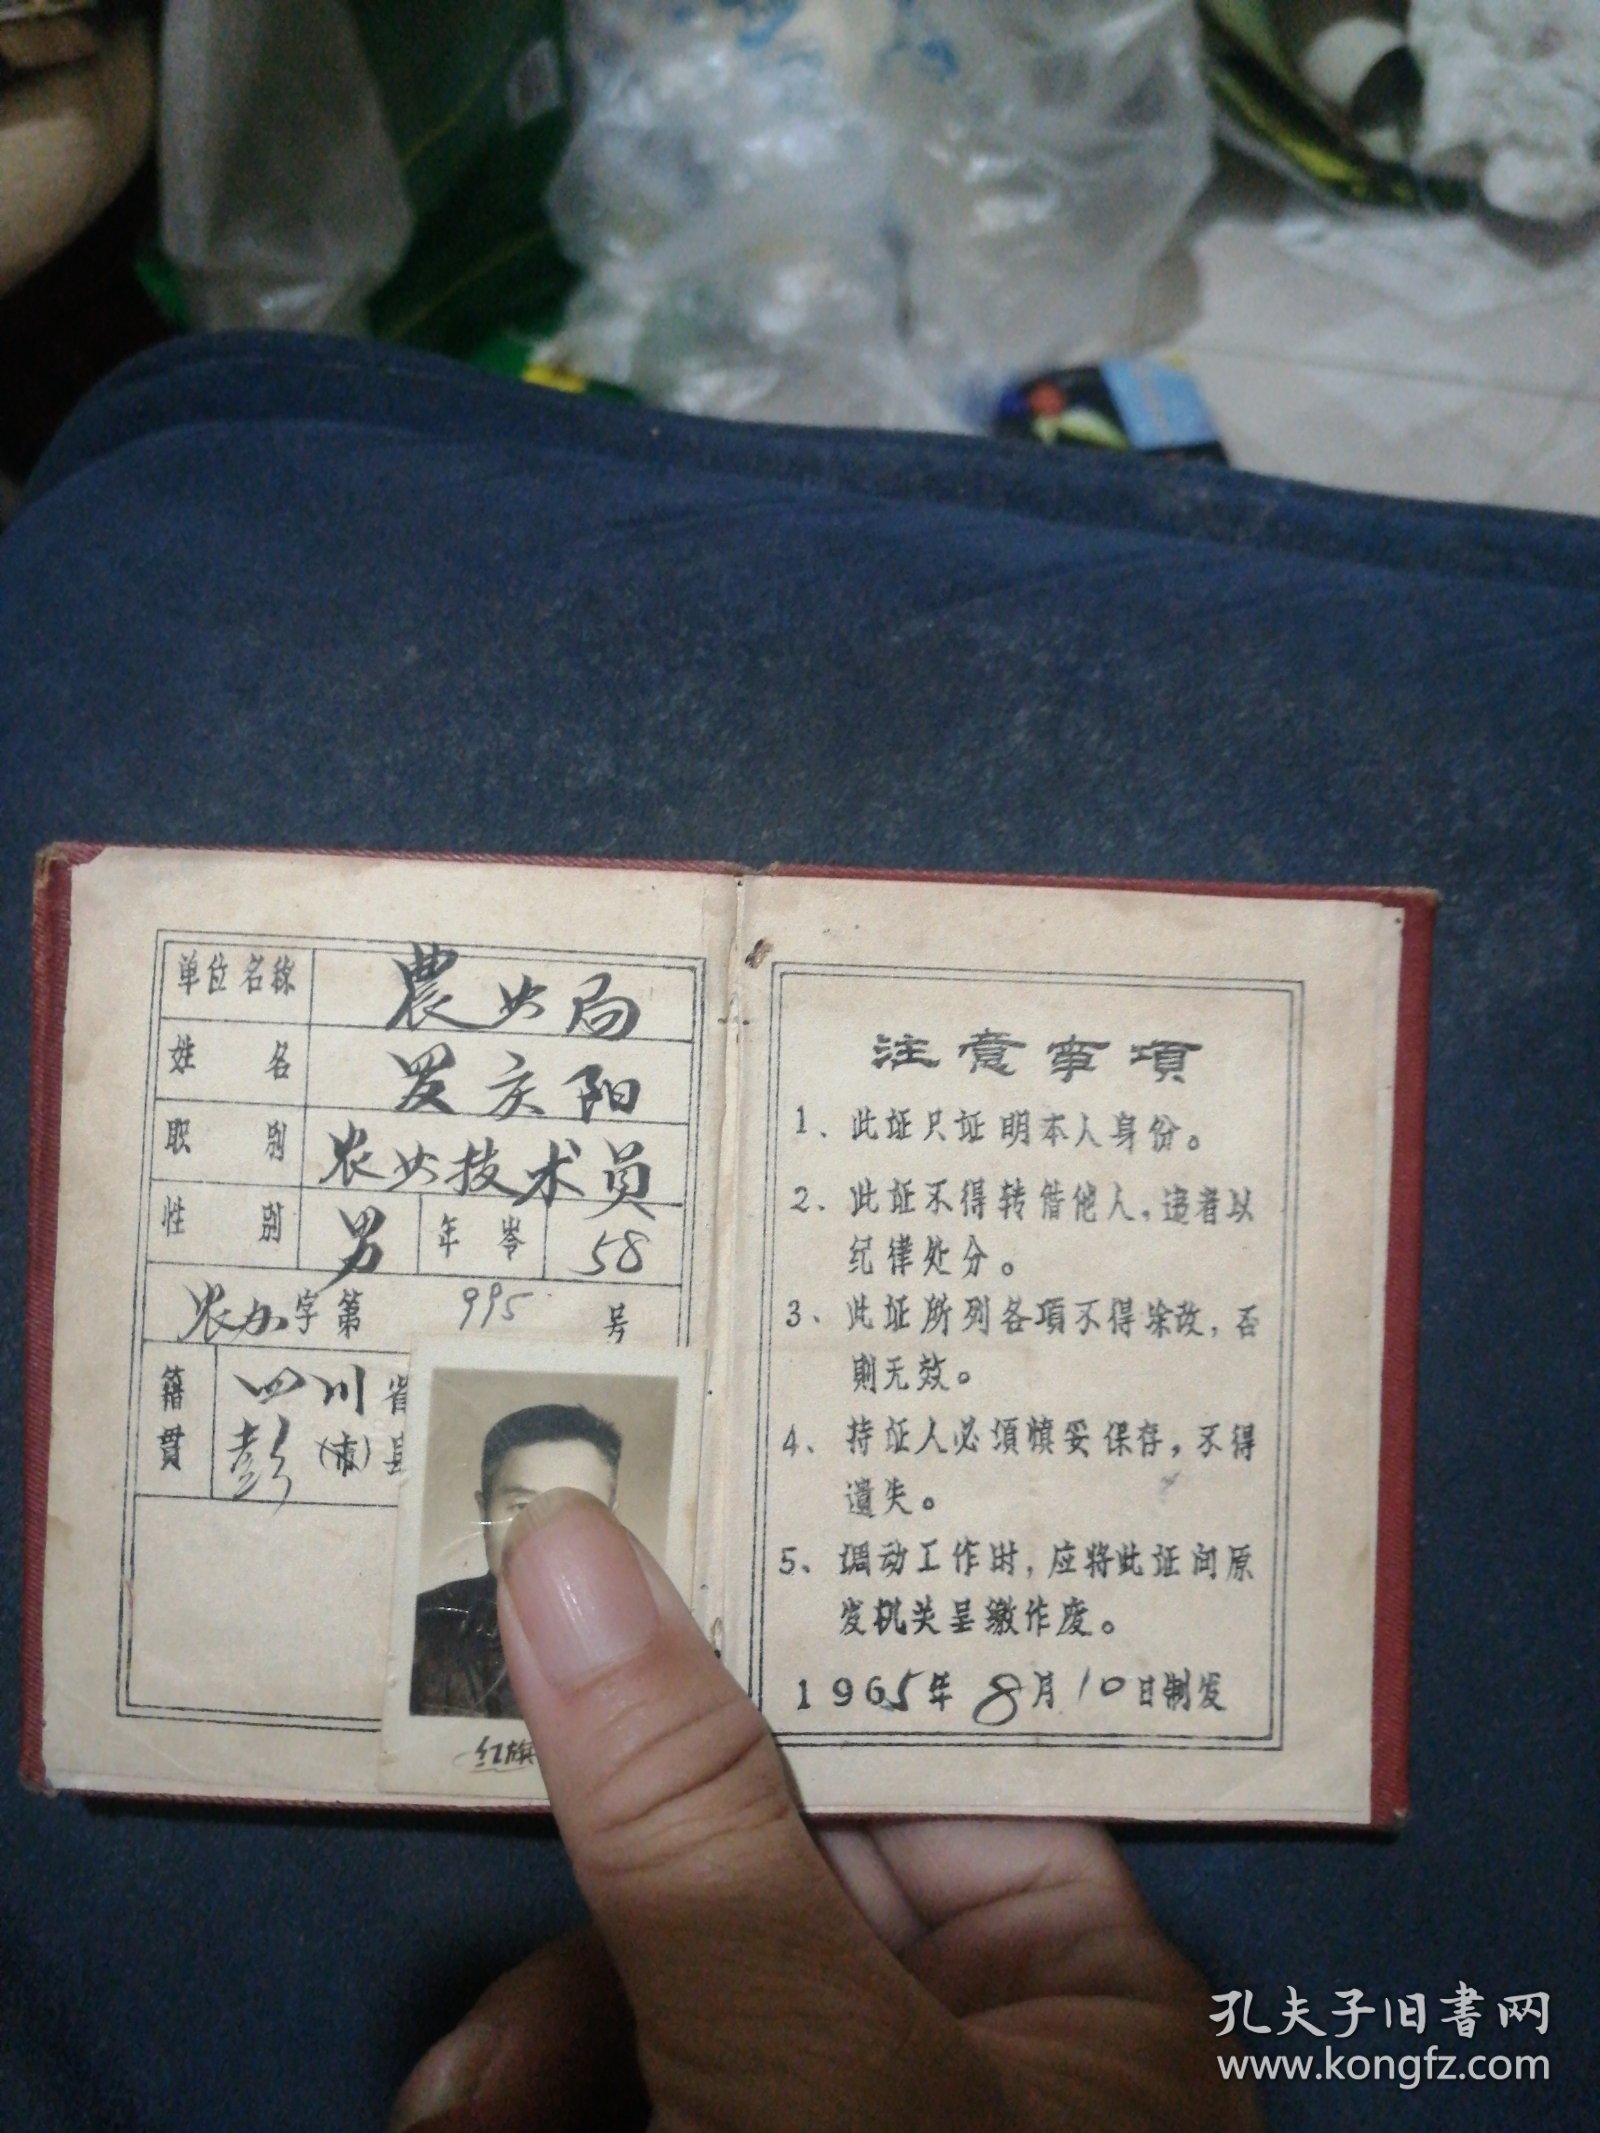 单位名称 農业局
姓名 罗庆阳
职别 农业技术员
性别 男 年岺 58
农办字第 995 号
籍貫 四川省
彭(市)县
红旗
注意事項
1、此证只证明本人身份。
2、此证不得转借他人,违者以
纪律处分。
3、此证所列各項不得涂改,否
則无效。
4、持证人必須慎妥保存,不得
遺失。
5、调动工作时,应将此证向原
发机关呈缴作废。
1965年8月10日制发
孔夫子旧書网
www.kongfz.com